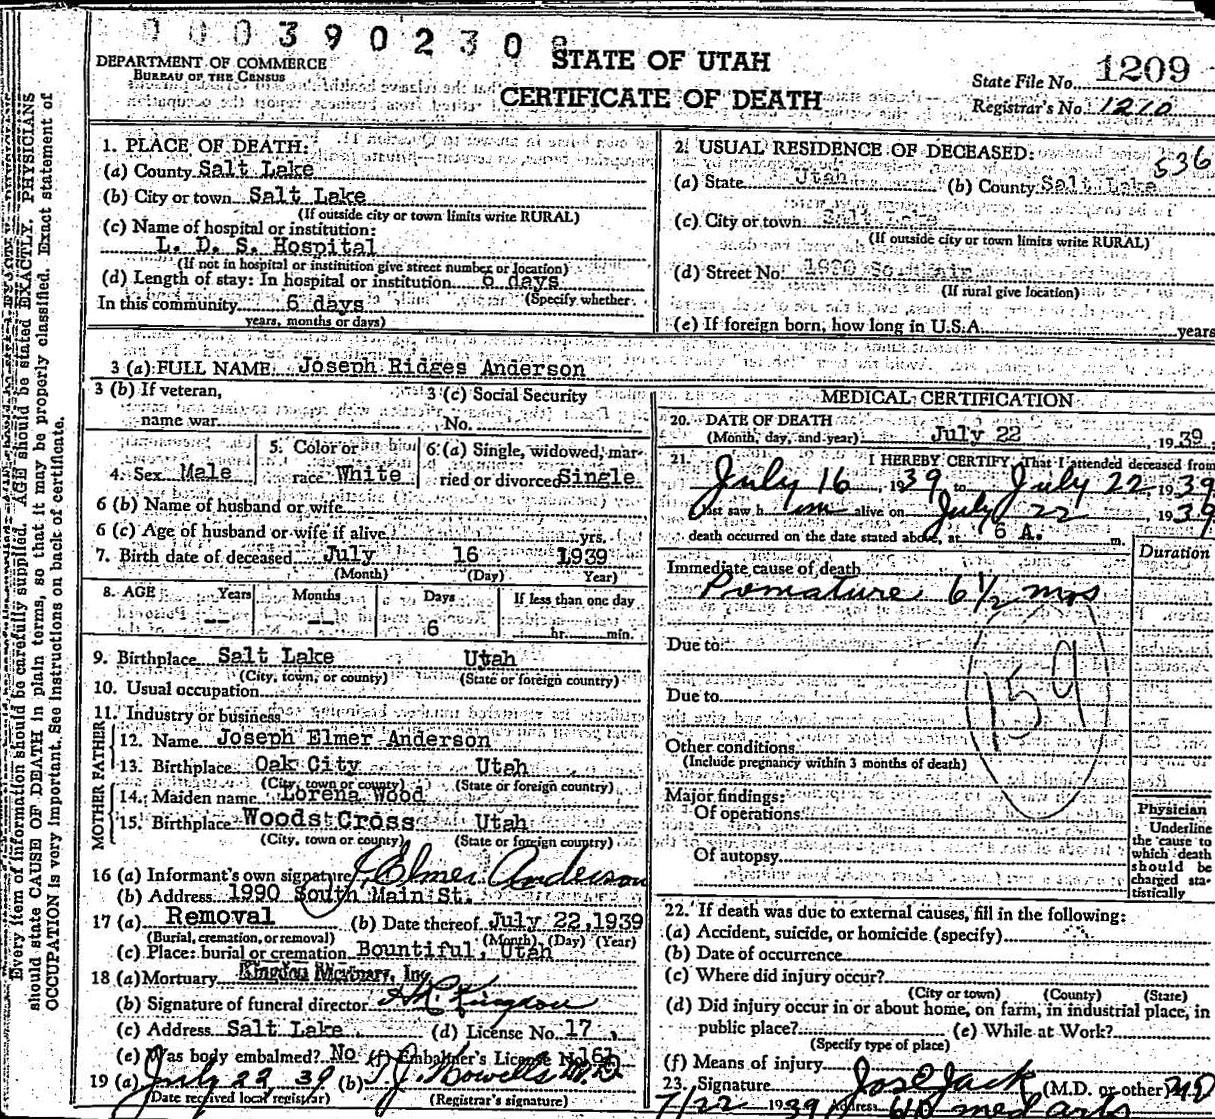 0 0 0 3 9 0 2 3 0
DEPARTMENT OF COMMERCE
BUREAU OF THE CENSUS
STATE OF UTAH
CERTIFICATE OF DEATH
State File No. 1209
Registrar's No. 1210
Every item of information should be carefully supplied. AGE should be stated EXACTLY. PHYSICIANS
should state CAUSE OF DEATH in plain terms, so that it may be properly classified. Exact statement of
OCCUPATION is very important. See instructions on back of certificate.
1. PLACE OF DEATH:
(a) County Salt Lake
(b) City or town Salt Lake
(If outside city or town limits write RURAL)
(c) Name of hospital or institution:
L. D. S. Hospital
(If not in hospital or institution give street number or location)
(d) Length of stay: In hospital or institution 6 days
(Specify whether
In this community 6 days
years, months or days)
2. USUAL RESIDENCE OF DECEASED: 536
(a) State Utah (b) County Salt Lake
(c) City or town Salt Lake
(If outside city or town limits write RURAL)
(d) Street No. 1990 So. Main
(If rural give location)
(e) If foreign born, how long in U.S.A. years
3 (a) FULL NAME Joseph Ridges Anderson
3 (b) If veteran,
name war
3 (c) Social Security
No.
4. Sex Male
5. Color or
race White
6 (a) Single, widowed, mar-
ried or divorced Single
6 (b) Name of husband or wife
6 (c) Age of husband or wife if alive yrs.
7. Birth date of deceased July 16 1939
(Month) (Day) Year)
8. AGE Years Months Days If less than one day
-- -- 6 hr. min.
9. Birthplace Salt Lake Utah
(City, town, or county) (State or foreign country)
10. Usual occupation
11. Industry or business
FATHER
12. Name Joseph Elmer Anderson
13. Birthplace Oak City Utah
(City, town or county) (State or foreign country)
MOTHER
14. Maiden name Lorena Wood
15. Birthplace Woods Cross Utah
(City, town or county) (State or foreign country)
16 (a) Informant's own signature J Elmer Anderson
(b) Address 1990 South Main St.
17 (a) Removal (b) Date thereof July 22, 1939
(Burial, cremation, or removal) (Month) (Day) (Year)
(c) Place: burial or cremation Bountiful, Utah
18 (a) Mortuary Kingdon Mortuary, Inc
(b) Signature of funeral director
(c) Address Salt Lake (d) License No. 17
(e) Was body embalmed? No (f) Embalmer's License No. 161
19 (a) July 22, 39 (b) T J Howells M.D.
(Date received local registrar) (Registrar's signature)
MEDICAL CERTIFICATION
20. DATE OF DEATH
(Month, day, and year) July 22, 1939
21. I HEREBY CERTIFY, That I attended deceased from
July 16, 1939 to July 22 1939
last saw him alive on July 22 1939
death occurred on the date stated above, at 6 A. m.
Duration
Immediate cause of death
Premature 6 1/2 mos
159
Due to
Due to
Other conditions
(Include pregnancy within 3 months of death)
Major findings:
Of operations
Of autopsy
Physician
Underline
the cause to
which death
should be
charged sta-
tistically
22. If death was due to external causes, fill in the following:
(a) Accident, suicide, or homicide (specify)
(b) Date of occurrence
(c) Where did injury occur?
(City or town) (County) (State)
(d) Did injury occur in or about home, on farm, in industrial place, in
public place? (e) While at Work?
(Specify type of place)
(f) Means of injury
23. Signature Jos E Jack (M.D. or other) MD
7/22 1939 Address med arts